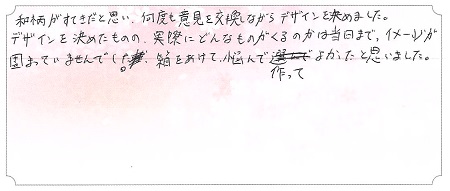 和柄がすてきだと思い、何度も意見を交換しながらデザインを決めました。
デザインを決めたものの、実際にどんなものがくるのかは当日まで、イメージが
固まっていませんでした。箱をあけて、悩んで
作って
よかったと思いました。